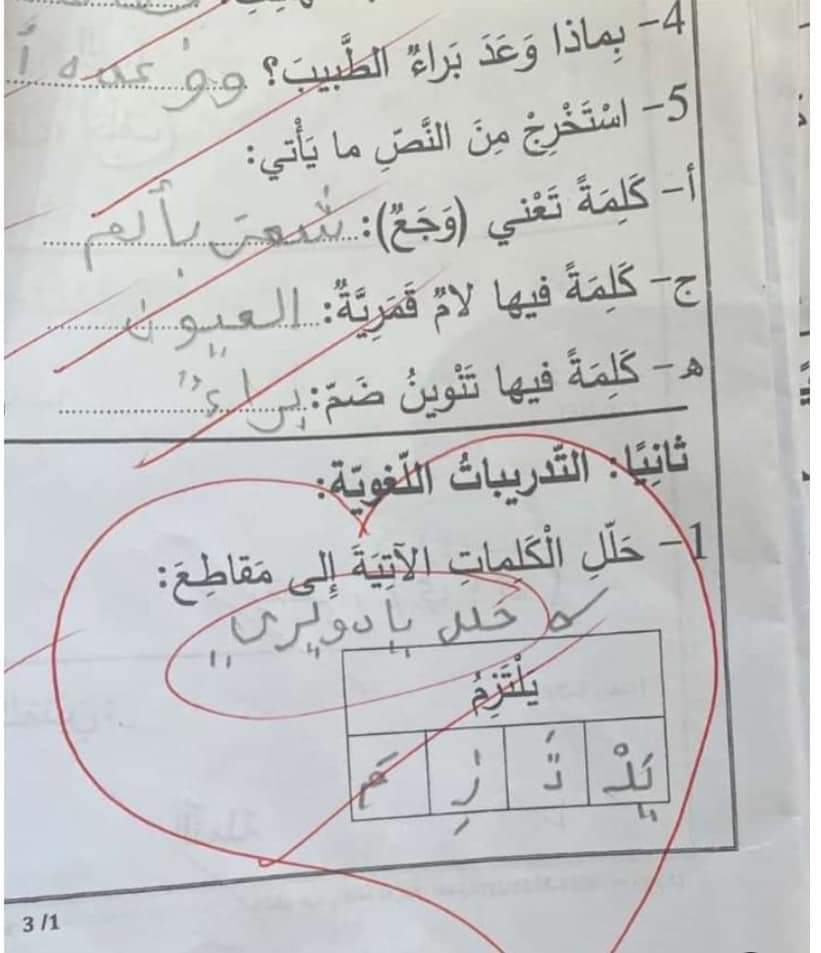 4- بِماذا وَعَدَ بَراءٌ الطَّبيبَ؟ ووعده أ
5- اسْتَخْرِجْ مِنَ النَّصِّ ما يَأْتي:
أ- كَلِمَةً تَعْني (وَجَعٌ): شعر بألم
ج- كَلِمَةً فيها لامٌ قَمَرِيَّةٌ: العيون
هـ- كَلِمَةً فيها تَنْوينُ ضَمّ: براءٌ
ثانِيًا: التّدريباتُ اللّغويّة:
1- حَلّلِ الْكَلِماتِ الآتِيَةَ إلى مَقاطِعَ:
يَلْتَزِمُ
يَلْ تَ زِ مُ
3 /1